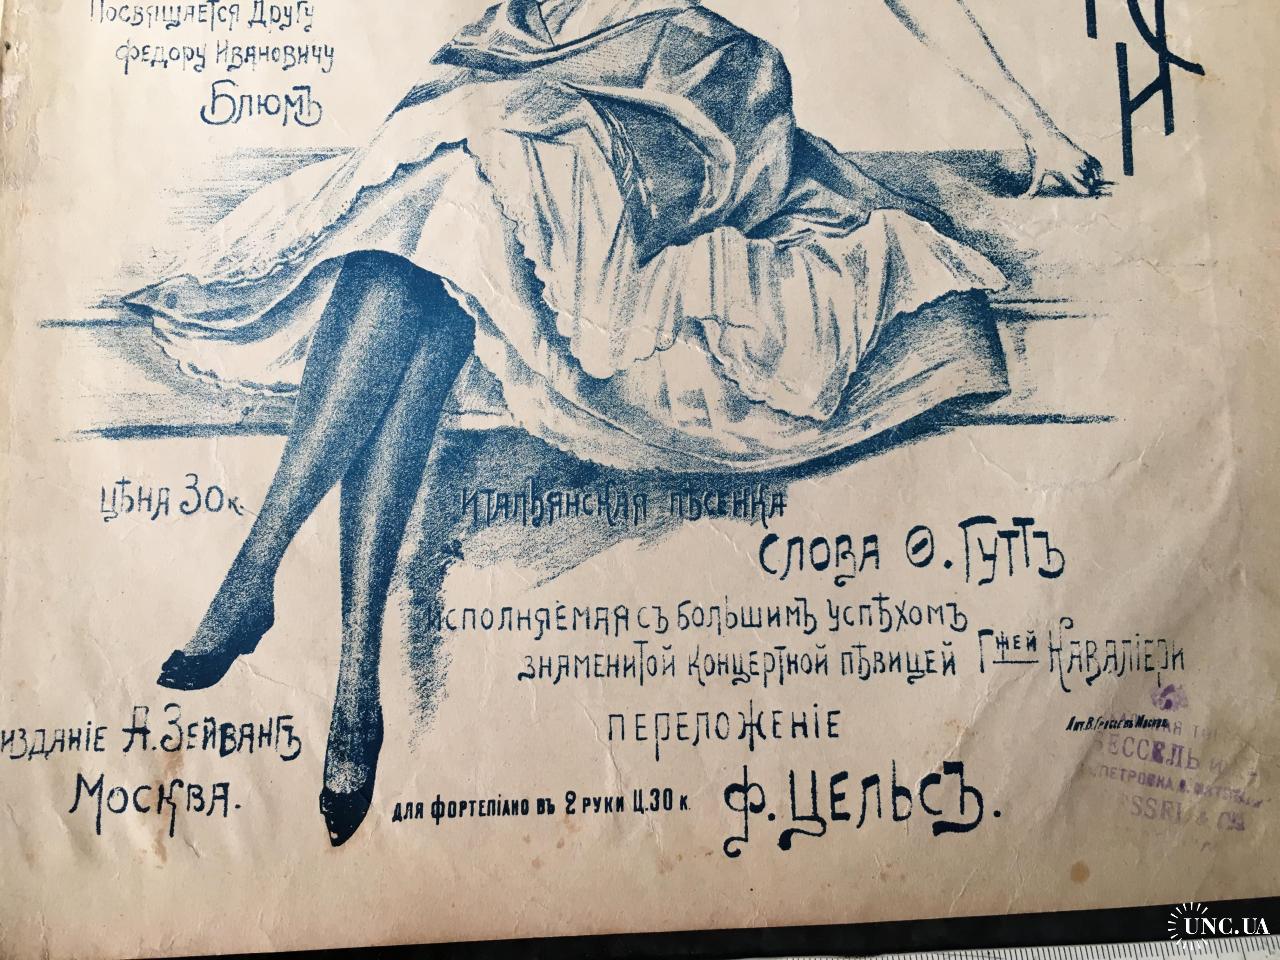 Посвящается Другу
Федору Ивановичу
Блюмъ
Цѣна 30 к.
Итальянская пѣсенка
Слова Ѳ. Гуттъ
Исполняемая съ большимъ успѣхомъ
знаменитой концертной пѣвицей Гжей Кавалiери
Переложенiе
Изданiе А. Зейвангъ
Москва.
для фортепiано въ 2 руки Ц. 30 к.
Ф. Цельсъ.
Лит. В. Гроссе въ Москвѣ
БЕССЕЛЬ и
ПЕТРОВКА
UNC.UA